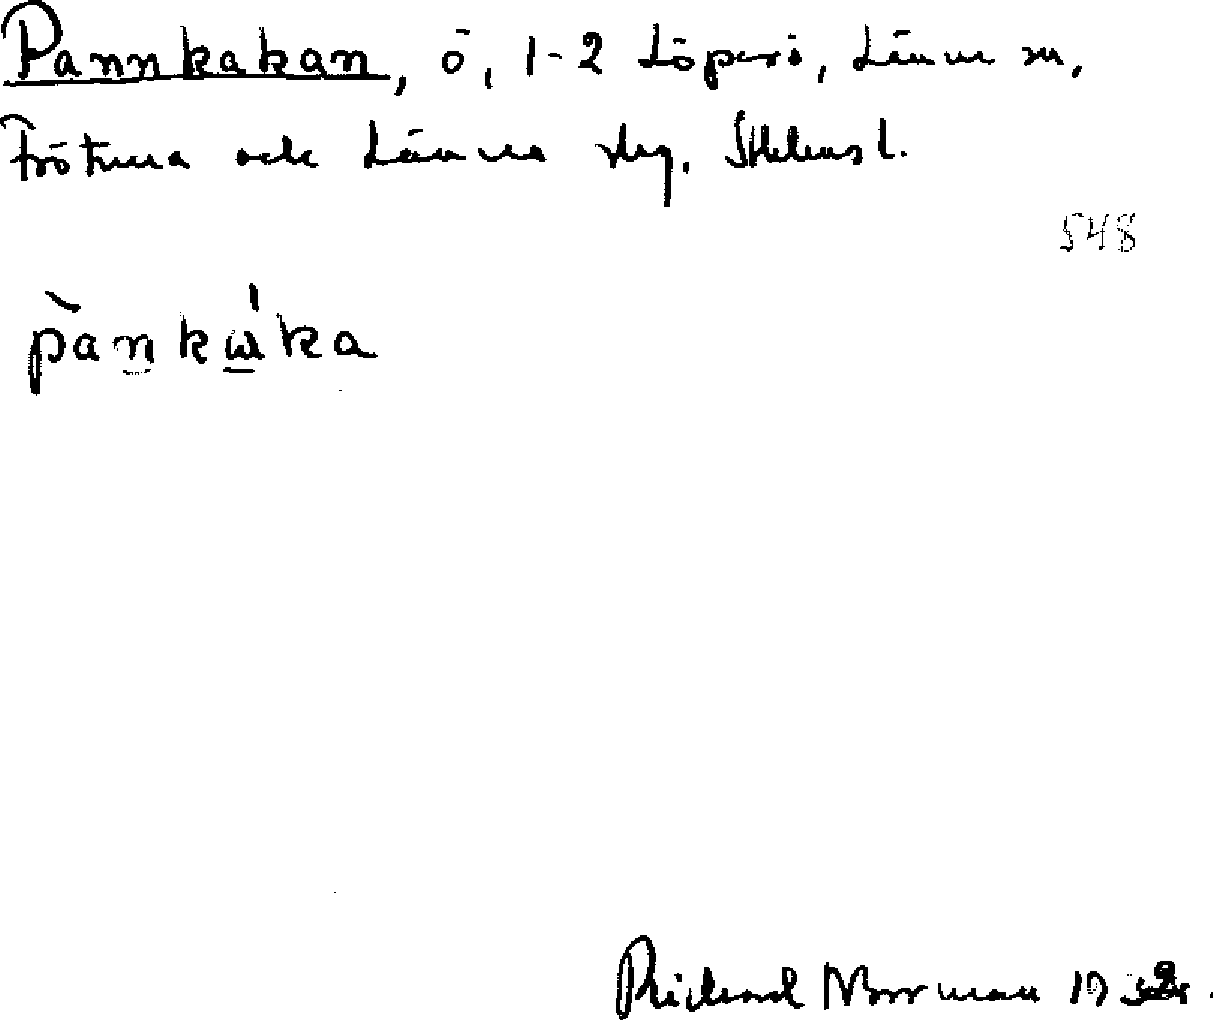 Pannkakan, ö, 1-2 Löparö, Länna sn,
Frötuna och Länna slg. Sthlms l.
548
pànkɯ̀ka
Richard Norrman 19